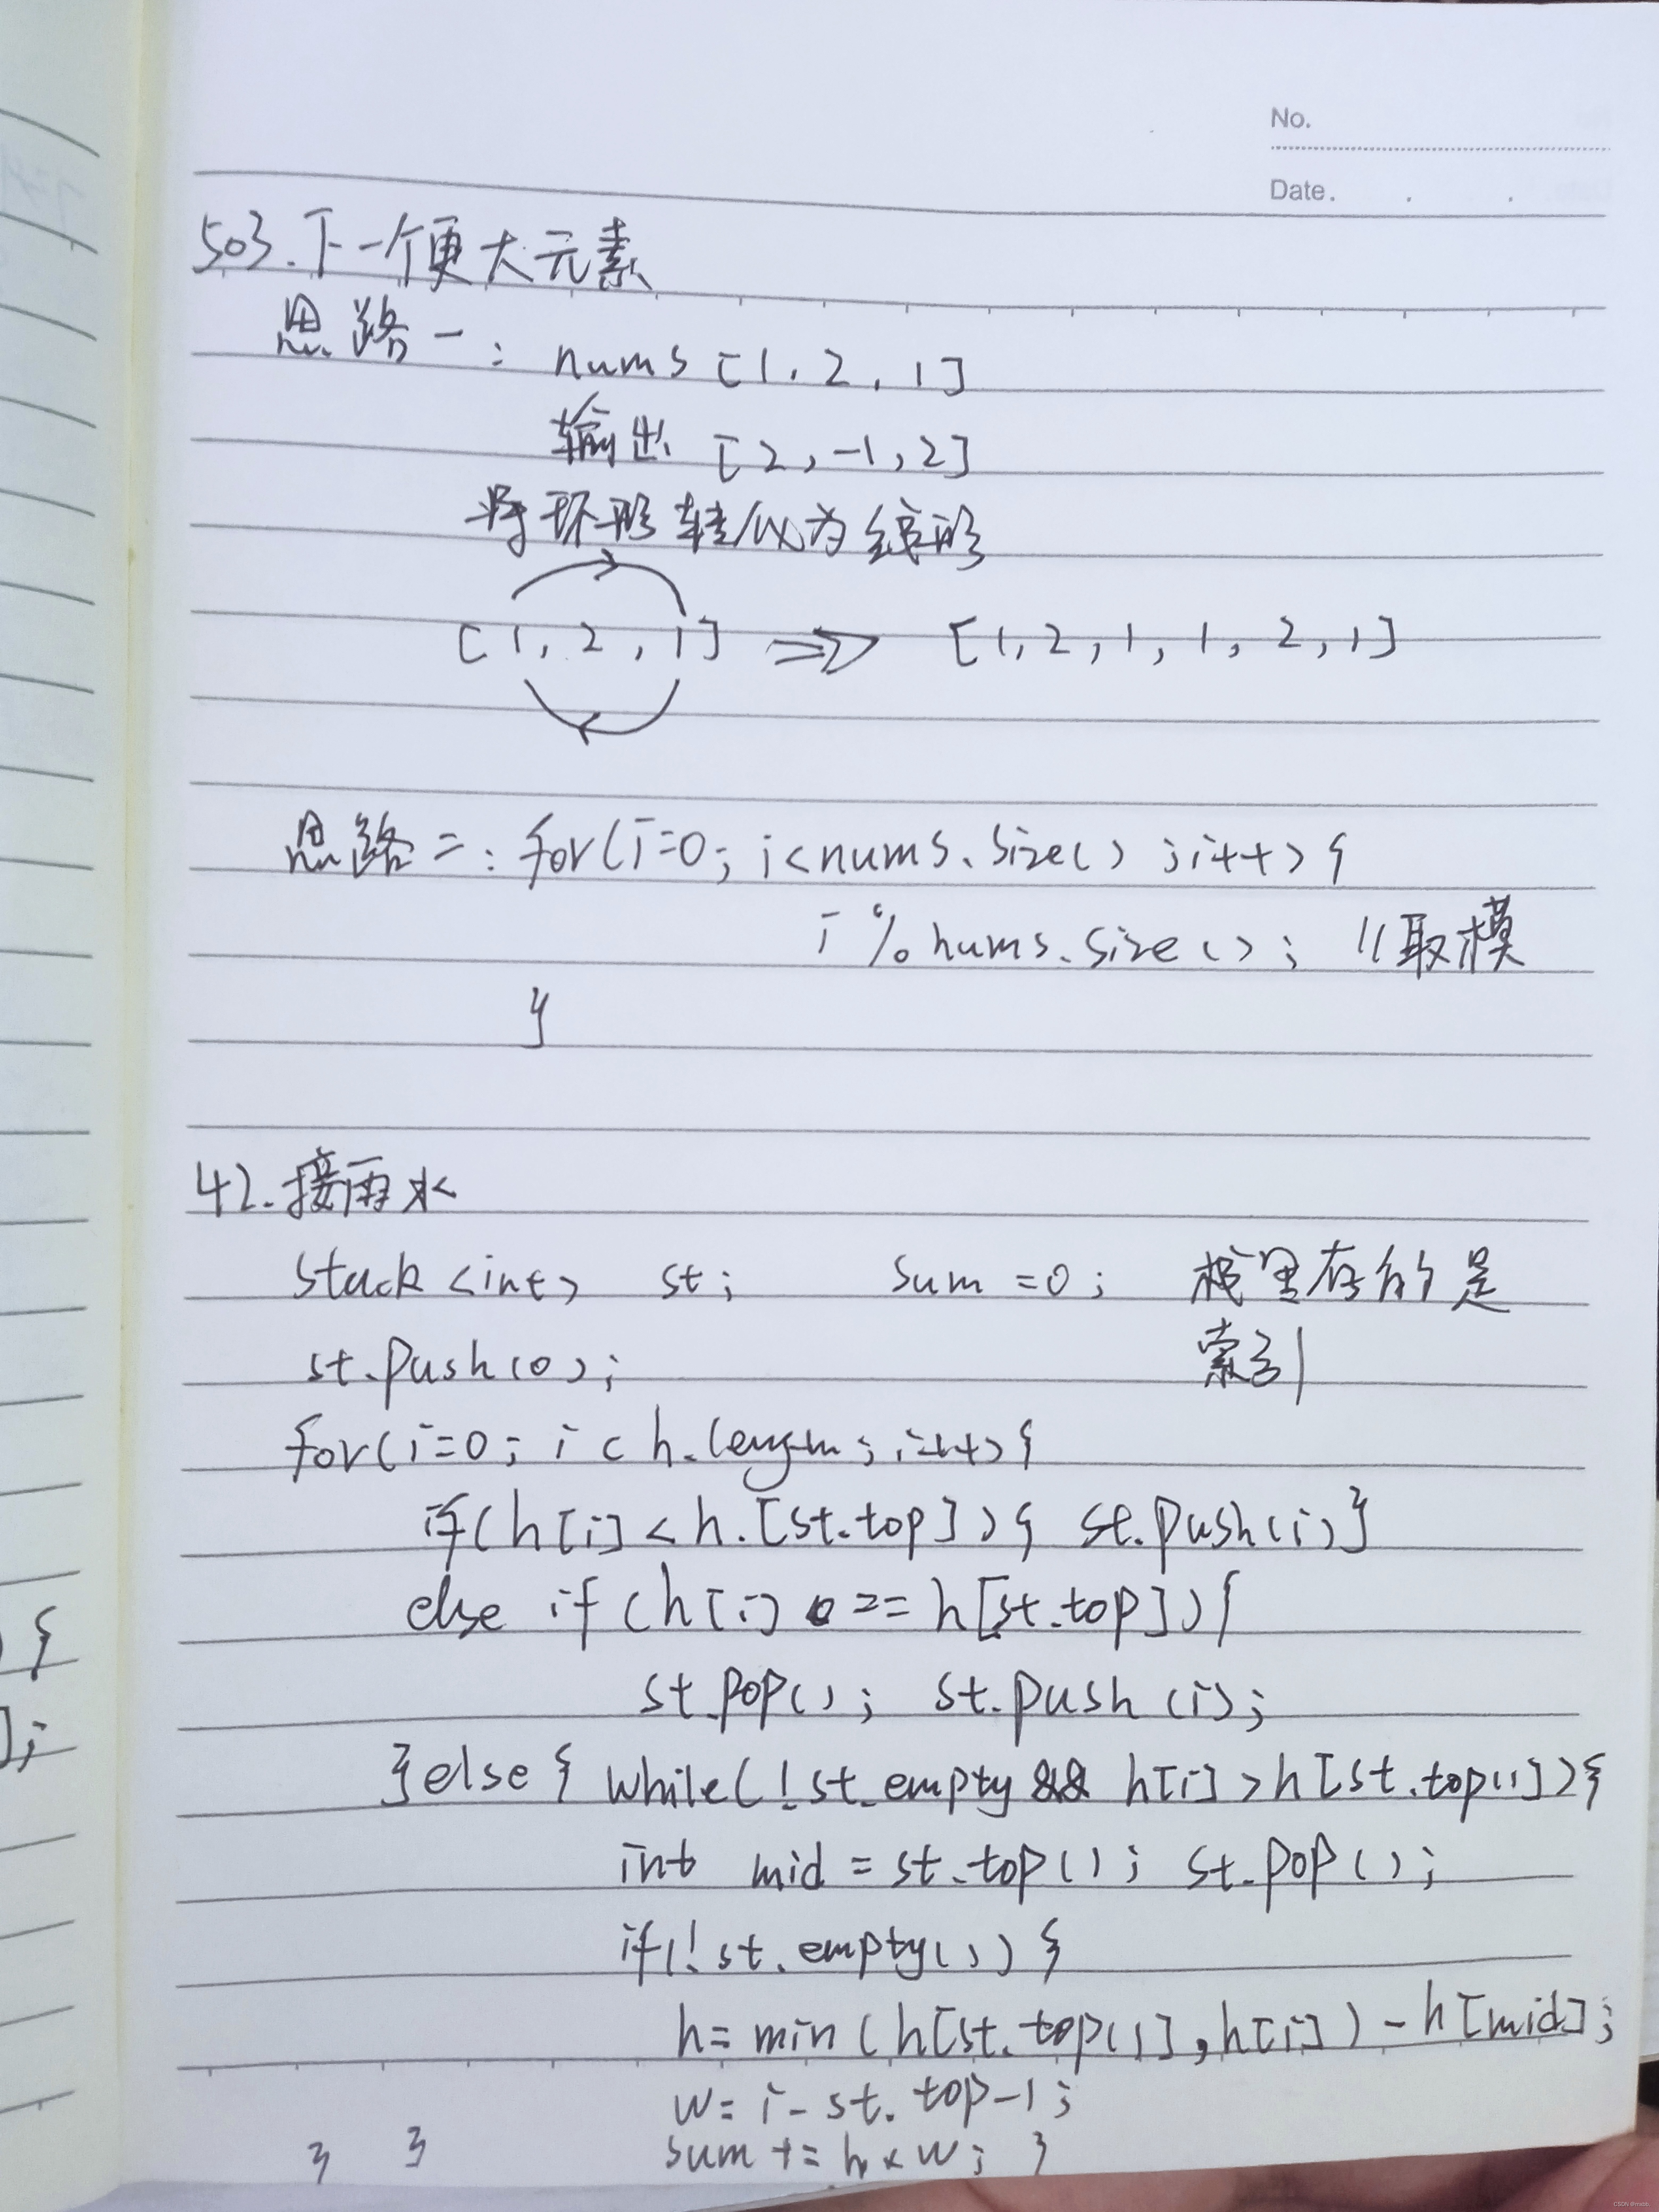 No.
Date.
503.下一个更大元素
思路一: nums [1, 2, 1]
输出 [2, -1, 2]
将环形转化为线形
[1, 2, 1] => [1, 2, 1, 1, 2, 1]
思路二: for(i=0; i<nums.size() ;i++){
i % nums.size(); //取模
}
42.接雨水
stack<int> st; sum=0; 栈里存的是
st.push(0); 索引
for(i=0; i<h.length; i++){
if(h[i]<h.[st.top]){ st.push(i)}
else if (h[i] == h[st.top]){
st.pop(); st.push(i);
}else{ while(!st.empty && h[i]>h[st.top()]){
int mid = st.top(); st.pop();
if(!st.empty()){
h=min(h[st.top()],h[i])-h[mid];
w=i-st.top-1;
} } sum+=h*w; }
{
];
CSDN